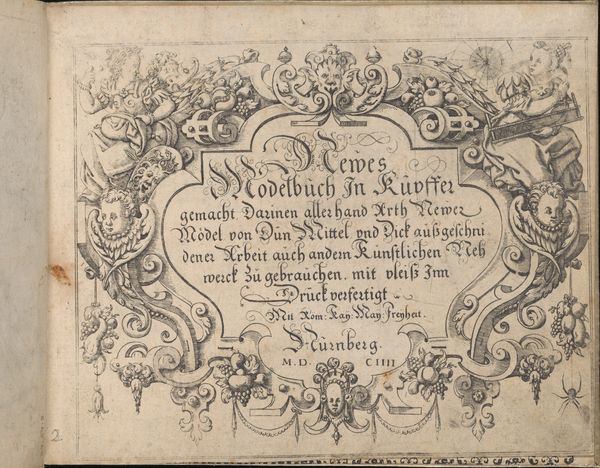 Newes
Modelbuch In Kupffer
gemacht Darinen allerhand Arth Newer
Mödel von Dün Mittel vnd Dick außgeschni
dener Arbeit auch andern Künstlichen Neh
werck Zu gebrauchen. mit vleiß Inn
Druck verfertigt.
Mit Rom: Kay: May: Freyheit.
Nürnberg.
M. D. CIIII
2